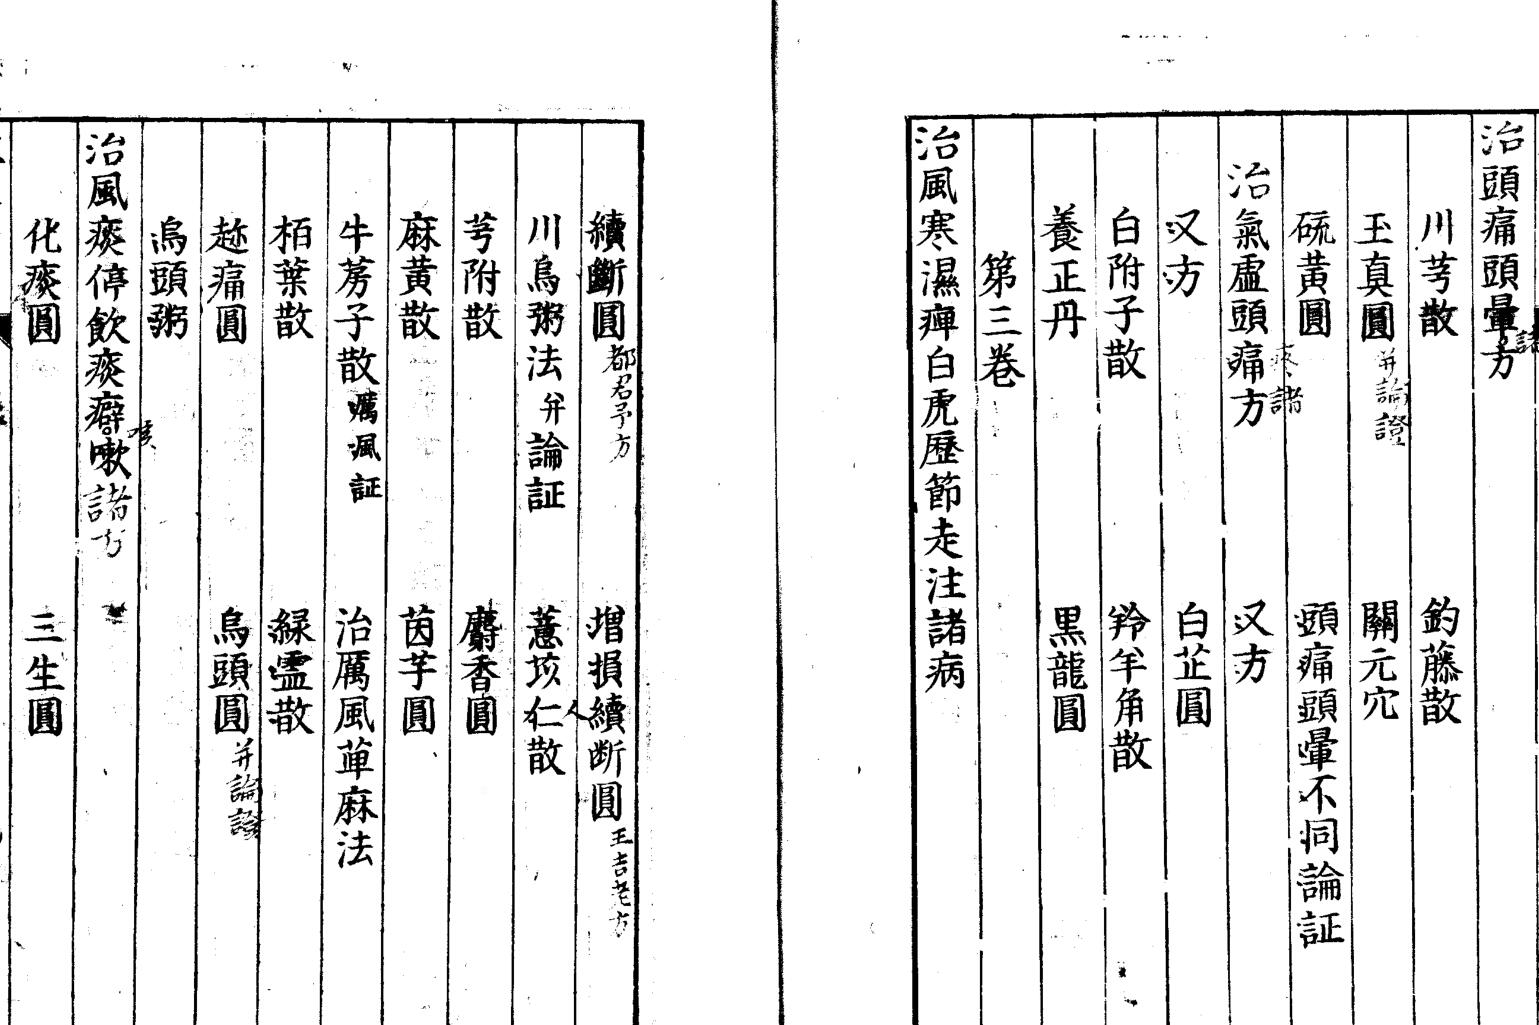 治頭痛頭暈諸方
川芎散 釣藤散
玉真圓并論證 關元穴
硫黃圓 頭痛頭暈不同論証
治氣虛頭痛諸方 又方
又方 白芷圓
白附子散 羚羊角散
養正丹 黑龍圓
第三卷
治風寒濕痺白虎歷節走注諸病
續斷圓都君予方 增損續断圓王吉老方
川烏粥法并論証 薏苡仁散
芎附散 麝香圓
麻黃散 茵芋圓
牛蒡子散癘風証 治厲風萆麻法
栢葉散 綠靈散
趂痛圓 烏頭圓并論證
烏頭粥
治風痰停飲痰癖咳嗽諸方
化痰圓 三生圓